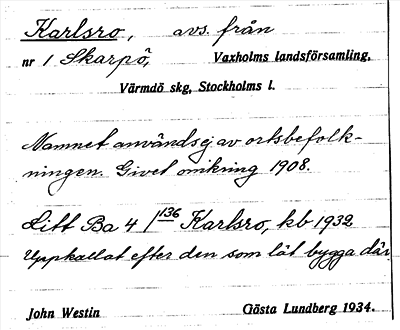 Karlsro, avs. från
nr 1 Skarpö, Vaxholms landsförsamling,
Värmdö skg, Stockholms l.
Namnet användes ej av ortsbefolk-
ningen. Givet omkring 1908.
Litt Ba 4 1/136 Karlsro, kb 1932.
Uppkallat efter den som lät bygga där
John Westin Gösta Lundberg 1934.